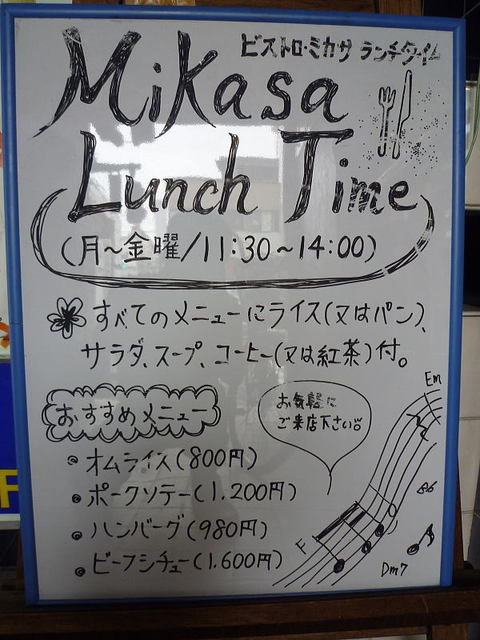 ビストロ・ミカサ ランチタイム
Mikasa
Lunch Time
(月～金曜/11:30～14:00)
すべてのメニューにライス(又はパン)、
サラダ、スープ、コーヒー(又は紅茶)付。
おすすめメニュー
お気軽に
ご来店下さい
オムライス(800円)
ポークソテー(1.200円)
ハンバーグ(980円)
ビーフシチュー(1.600円)
Em
F
Dm7